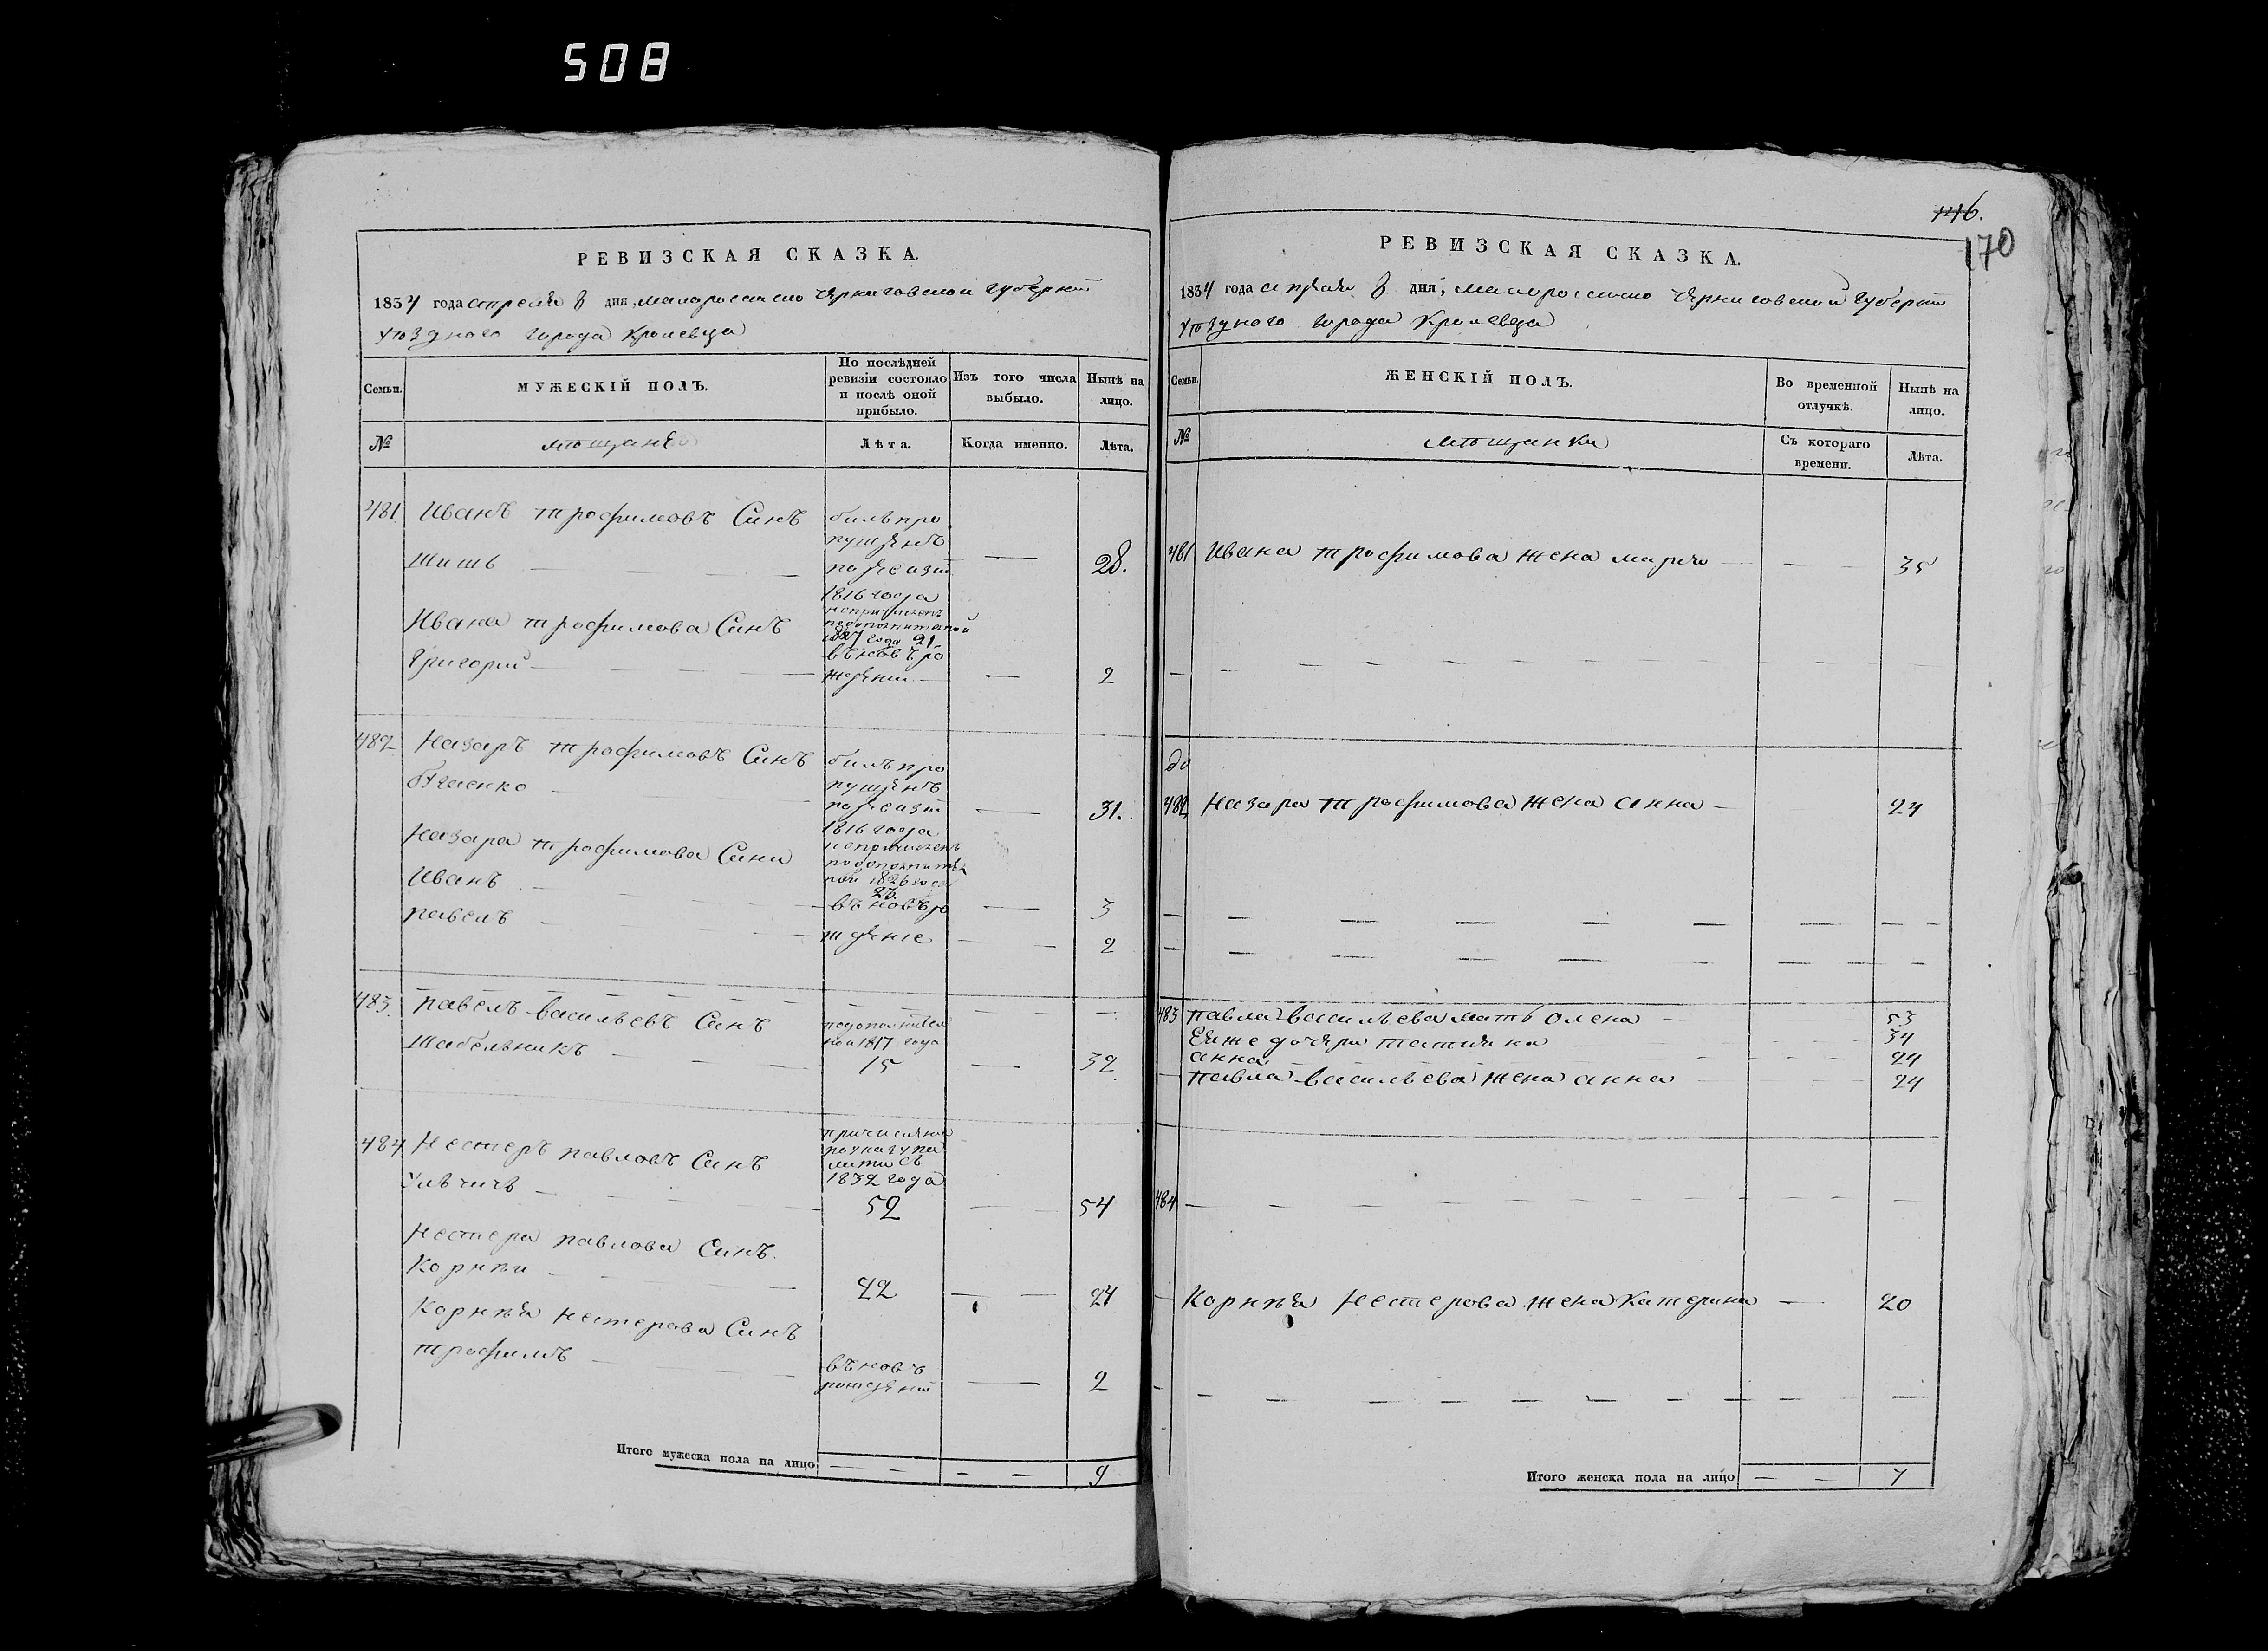 508
РЕВИЗСКАЯ СКАЗКА.
1834 года апреля 8 дня, малороссийско Черниговской Губернии
уѣзднаго города Кролевца
Семьи.
МУЖЕСКІЙ ПОЛЪ.
По послѣдней ревизіи состояло и послѣ оной прибыло.
Изъ того числа выбыло.
Нынѣ на лицо.
№
мѣщане
Лѣта.
Когда именно.
Лѣта.
481 Иванъ трофимовъ Синъ
Шишъ
билъ про
пущенъ
по ревизии
1816 года
28.
Ивана трофимова Синъ
Григорий
1827 года 21.
вьновъ ро
ждении
2
482 Назаръ трофимовъ Синъ
билъ про
пущенъ
по ревизии
1816 года
31.
Назара трофимова Сини
Иванъ
1826 года
23.
вьновъ ро
3
павелъ
ждение
2
483. павелъ васильевъ Синъ
Шабельникъ
1817 года
15
32
484 Нестеръ павловъ Синъ
1832 года
52
54
Нестера павлова Синъ.
Корнѣи
22
24
Корнѣя нестерова Синъ
трофимъ
вьновъ
рождений
2
Итого мужеска пола на лицо
9
146.
170
РЕВИЗСКАЯ СКАЗКА.
1834 года апреля 8 дня, малороссийско Черниговской Губернии
уѣзднаго города Кролевца
Семьи.
ЖЕНСКІЙ ПОЛЪ.
Во временной отлучкѣ.
Нынѣ на лицо.
№
мѣщанки
Съ котораго времени.
Лѣта.
481 Ивана трофимова жена марья 35
482 Назара трофимова жена анна 24
483 павла васильева мать олена 53
Ея же дочери татияна 34
анна 24
павла васильева жена анна 24
484
Корнѣя Нестерова жена Катерина 20
Итого женска пола на лицо
7